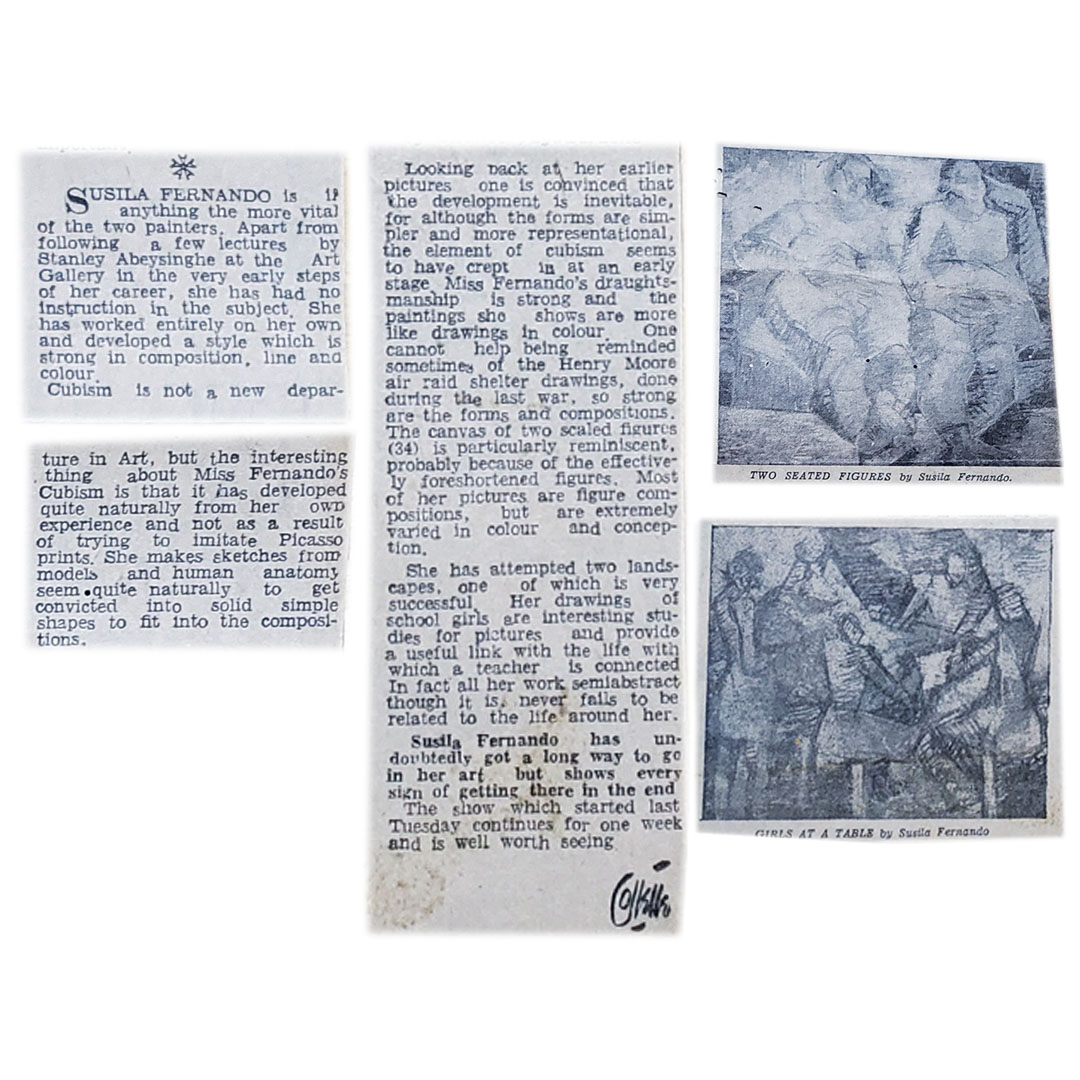 SUSILA FERNANDO is if
anything the more vital
of the two painters. Apart from
following a few lectures by
Stanley Abeysinghe at the Art
Gallery in the very early steps
of her career, she has had no
instruction in the subject. She
has worked entirely on her own
and developed a style which is
strong in composition, line and
colour.
Cubism is not a new depar-
ture in Art, but the interesting
thing about Miss Fernando's
Cubism is that it has developed
quite naturally from her own
experience and not as a result
of trying to imitate Picasso
prints. She makes sketches from
models and human anatomy
seem quite naturally to get
convicted into solid simple
shapes to fit into the composi-
tions.
Looking back at her earlier
pictures one is convinced that
the development is inevitable,
for although the forms are sim-
pler and more representational,
the element of cubism seems
to have crept in at an early
stage. Miss Fernando's draughts-
manship is strong and the
paintings she shows are more
like drawings in colour. One
cannot help being reminded
sometimes of the Henry Moore
air raid shelter drawings, done
during the last war, so strong
are the forms and compositions.
The canvas of two scaled figures
(34) is particularly reminiscent,
probably because of the effective-
ly foreshortened figures. Most
of her pictures are figure com-
positions, but are extremely
varied in colour and concep-
tion.
She has attempted two lands-
capes, one of which is very
successful. Her drawings of
school girls are interesting stu-
dies for pictures and provide
a useful link with the life with
which a teacher is connected
In fact all her work semiabstract
though it is, never fails to be
related to the life around her.
Susila Fernando has un-
doubtedly got a long way to go
in her art but shows every
sign of getting there in the end
The show which started last
Tuesday continues for one week
and is well worth seeing
Collette
TWO SEATED FIGURES by Susila Fernando.
GIRLS AT A TABLE by Susila Fernando